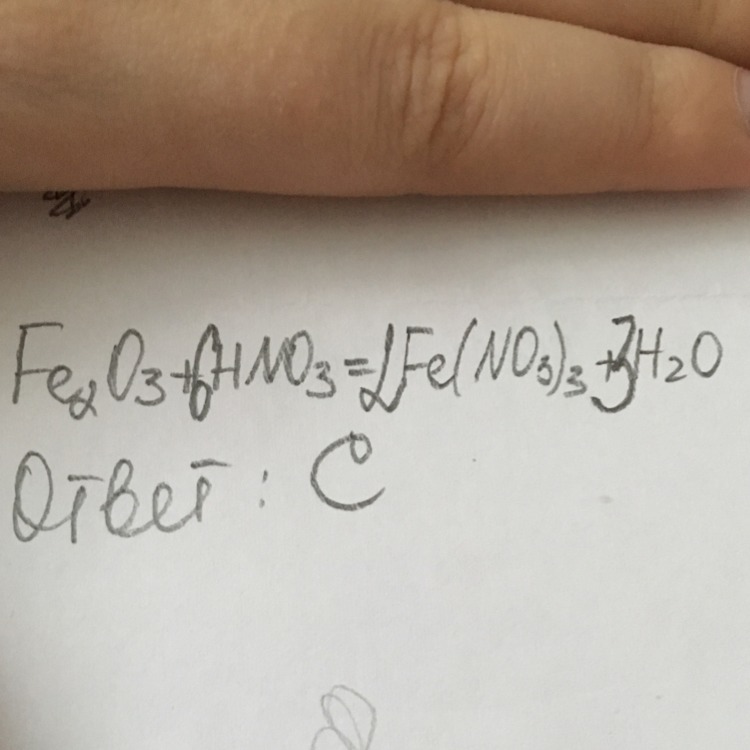 Fe₂O₃+6HNO₃=2Fe(NO₃)₃+3H₂O
Ответ : C